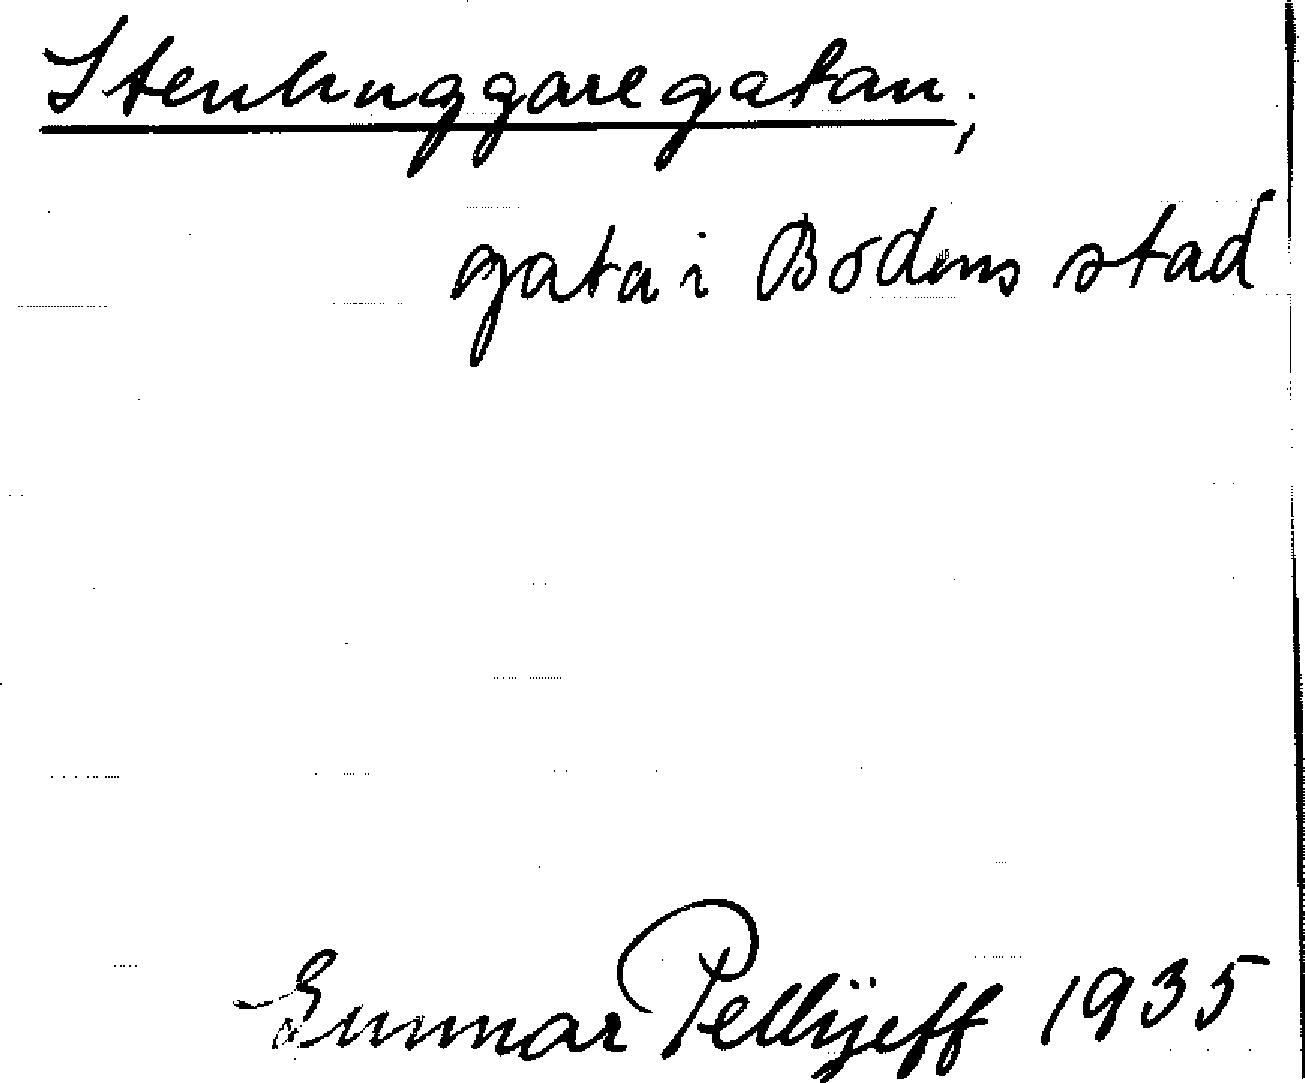 Stenhuggaregatan;
gata i Bodens stad
Gunnar Pellijeff 1935